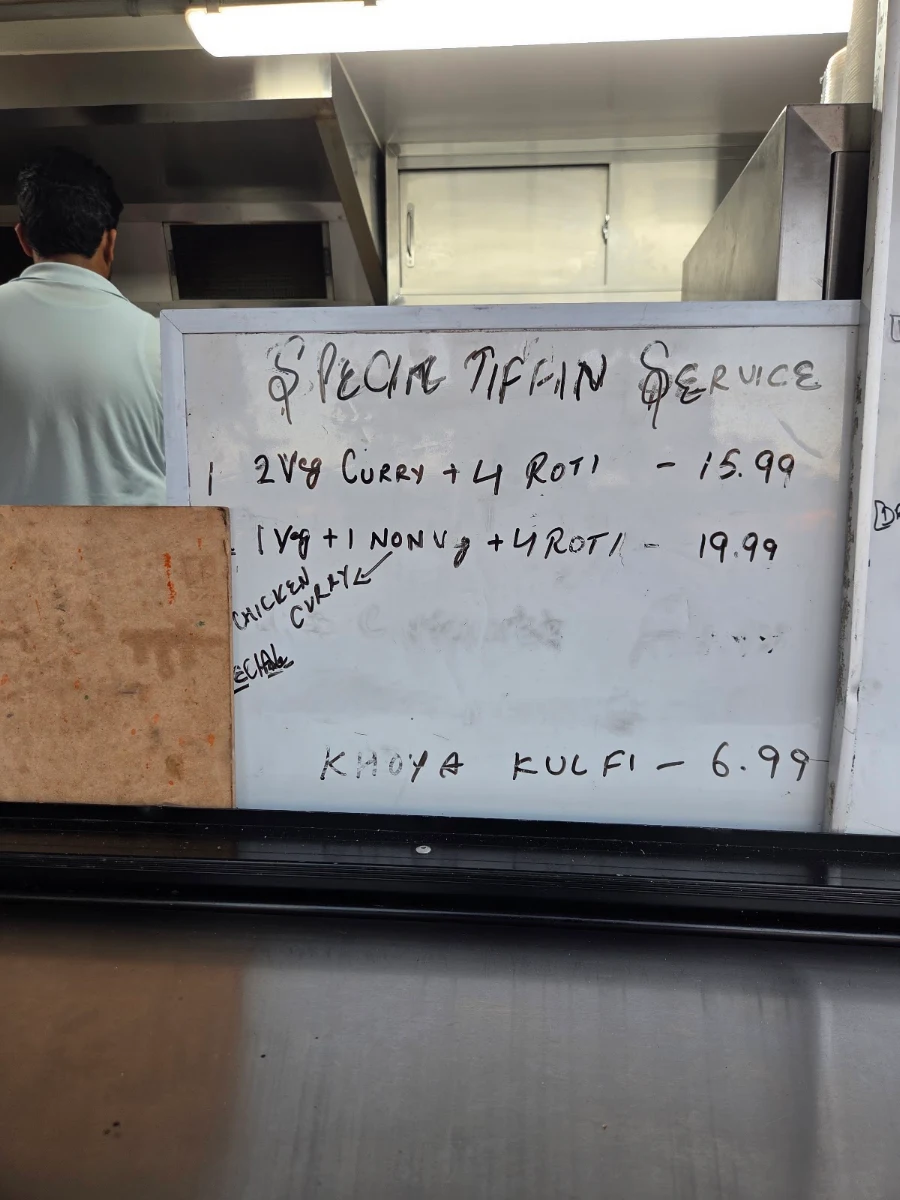 SPECIAL TIFFIN SERVICE
1 2 Veg CURRY + 4 ROTI - 15.99
1 Veg + 1 NON Vg + 4 ROTI - 19.99
CHICKEN
CURRY
ECIAL
KHOYA KULFI - 6.99